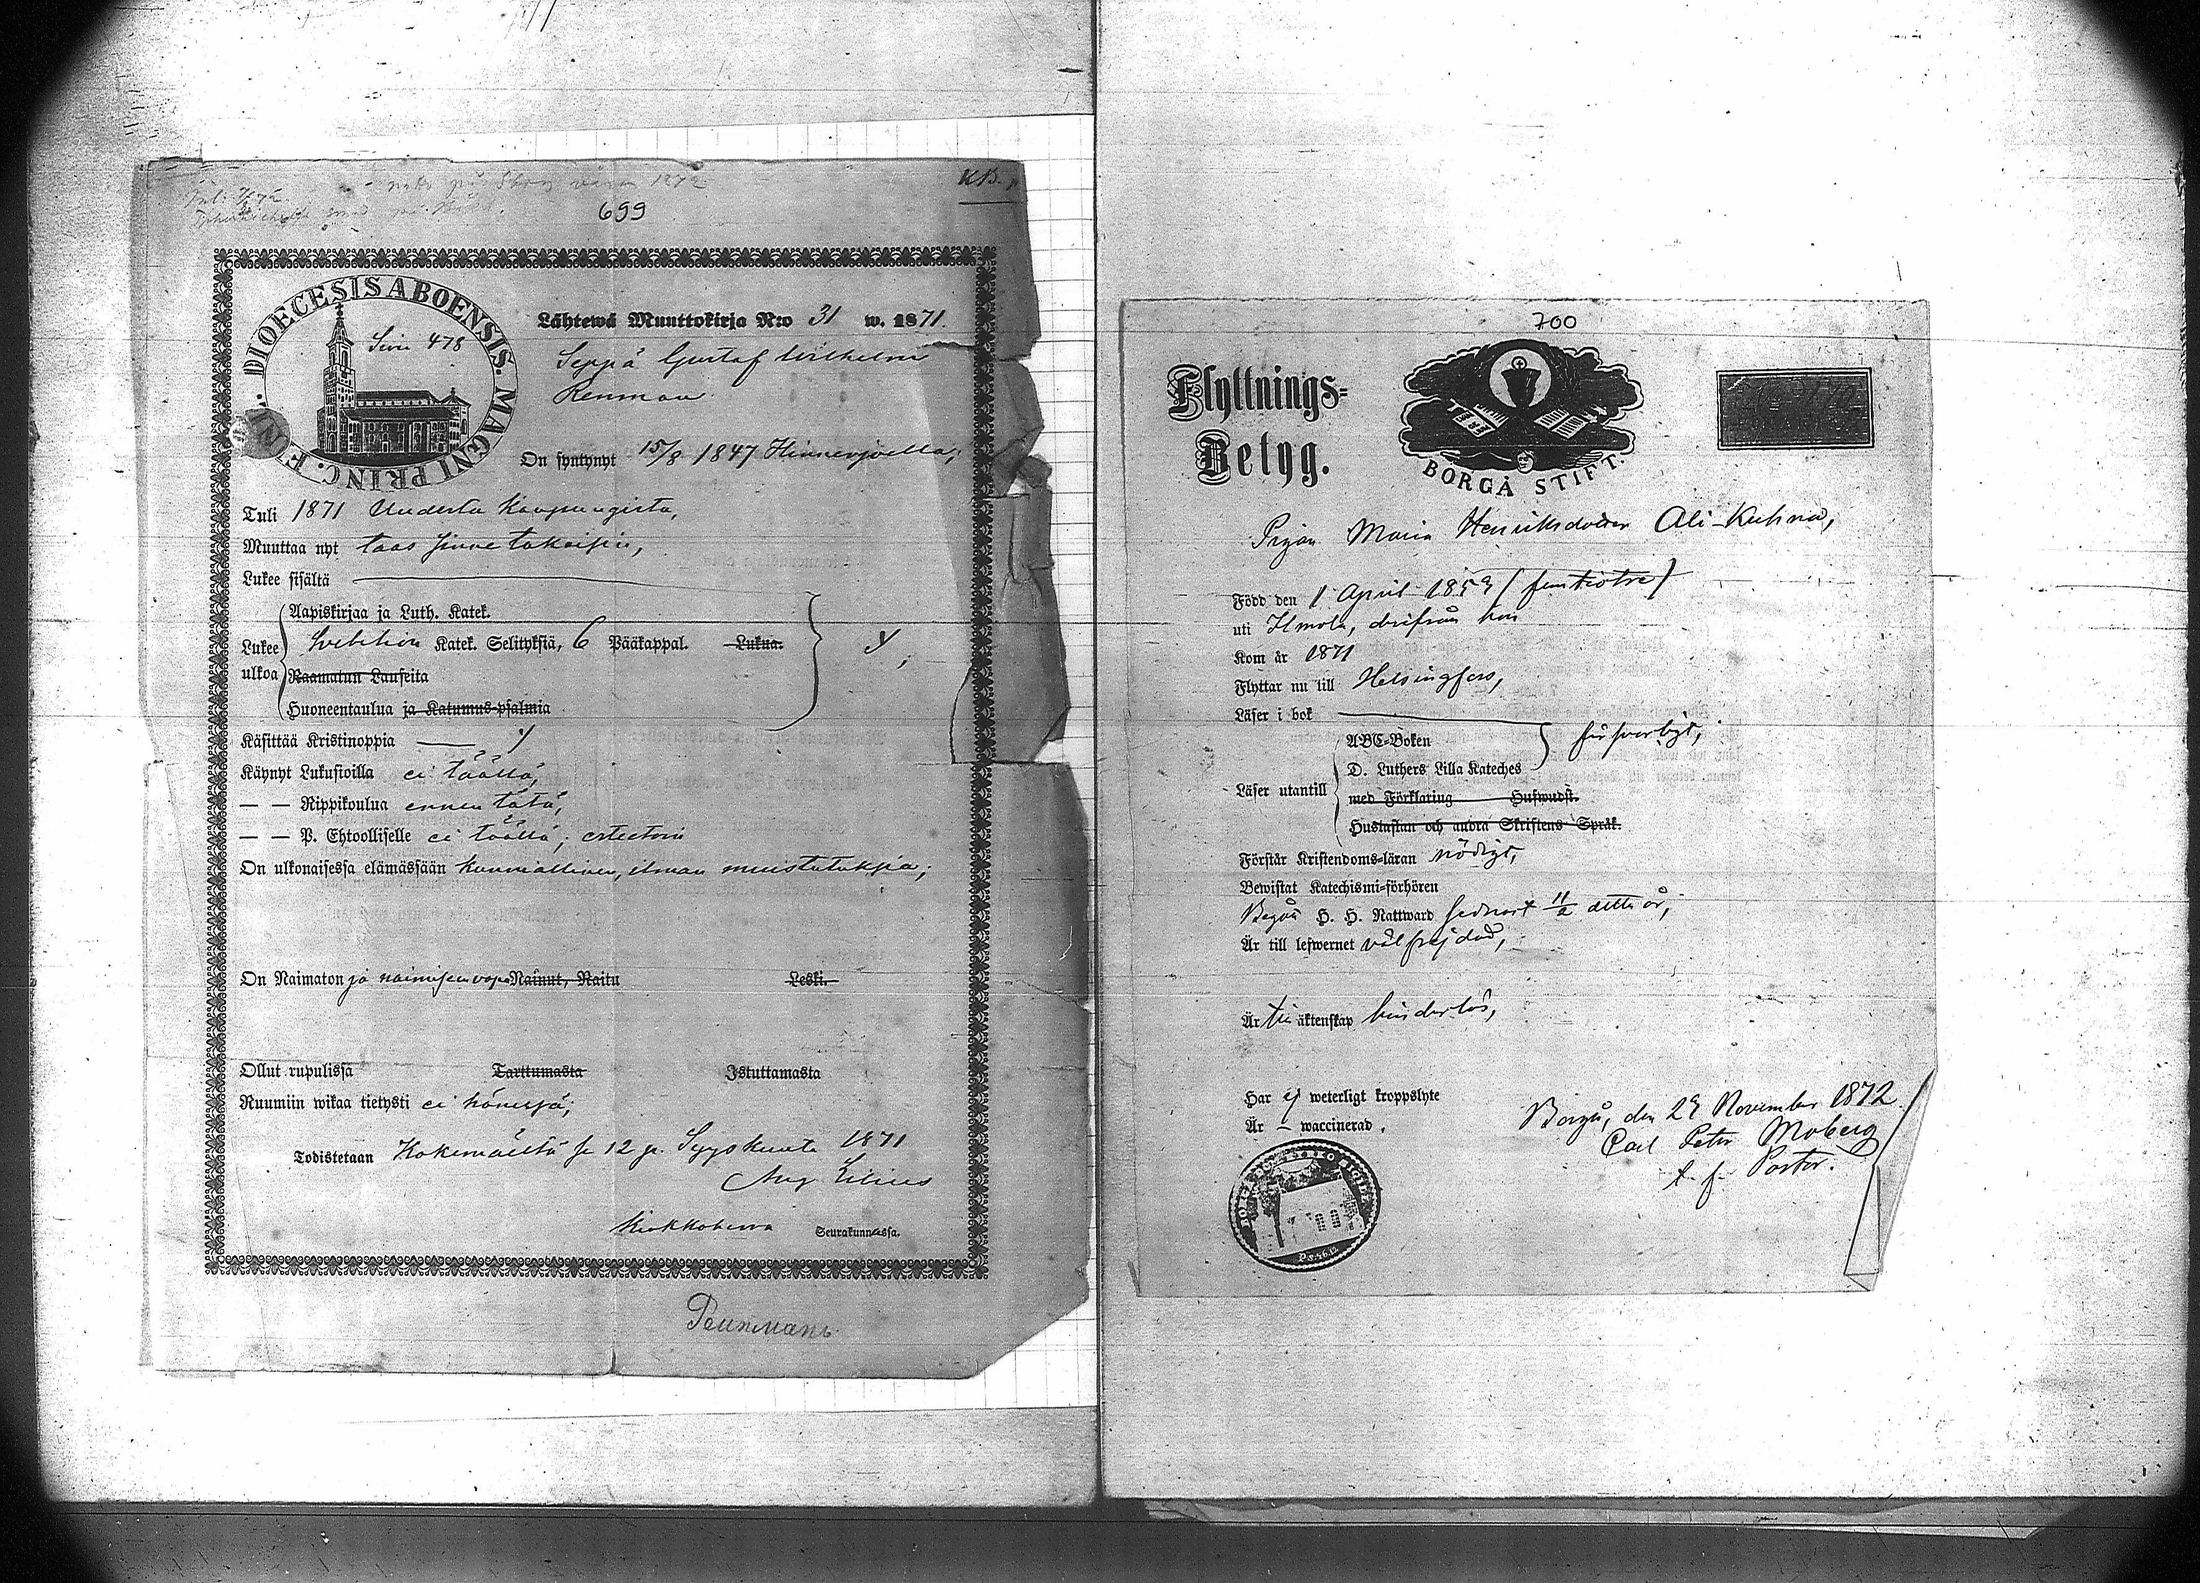 699
KB.
DIOECESIS ABOENSIS. MAGNI PRINC. F
Sivu 478
Lähtewä Muuttokirja N:o 31 w. 1871.
Seppä Gustaf Wilhelm
Renman
On syntynyt 15/8 1847 Hinnerjoella;
Tuli 1871 Uudesta Kaupungista,
Muuttaa nyt taas sinne takaisin,
Lukee sisältä
Aapiskirjaa ja Luth. Katek.
Lukee Svebilion Katek. Selityksiä, 6 Pääkappal. Lukua.
ulkoa Raamatun Lauseita
Huoneentaulua ja Katumus-psalmia
Käsittää Kristinoppia
Käynyt Lukusioilla ei täällä,
— — Rippikoulua ennen tätä,
— — P. Ehtoolliselle ei täällä; esteetön
On ulkonaisessa elämässään kunniallinen, ilman muistutuksia;
On Naimaton ja naimisen vapa Nainut, Raitu Leski.
Ollut rupulissa Tarttumasta Istuttamasta
Ruumiin wikaa tietysti ei hänessä;
Todistetaan Kokemäeltä se 12 p. Syyskuuta 1871
Aug Lilius
Kirkkoherra Seurakunnassa.
700
Flyttnings=
Betyg.
BORGÅ STIFT.
Pigan Maria Henriksdotter Ali-Kuhna,
Född den 1 April 1853 (femtiotre)
uti Ilmola, derifrån hon
Kom år 1871
Flyttar nu till Helsingfors,
Läser i bok
ABC=Boken försvarligt,
D. Luthers Lilla Kateches
Läser utantill
med Förklaring Huswudst.
Hustaflan och andra Skriftens Språk.
Förstår Kristendoms=läran nödigt,
Bewistat Katechismi=förhören
Begått H. H. Nattward sednast 11/2 detta år,
Är till lefwernet välfrejdad,
Är till äktenskap hinderlös,
Har ej weterligt kroppslyte
Är — waccinerad.
Borgå, den 29 November 1872
Carl Peter Moberg
t. f. Pastor.